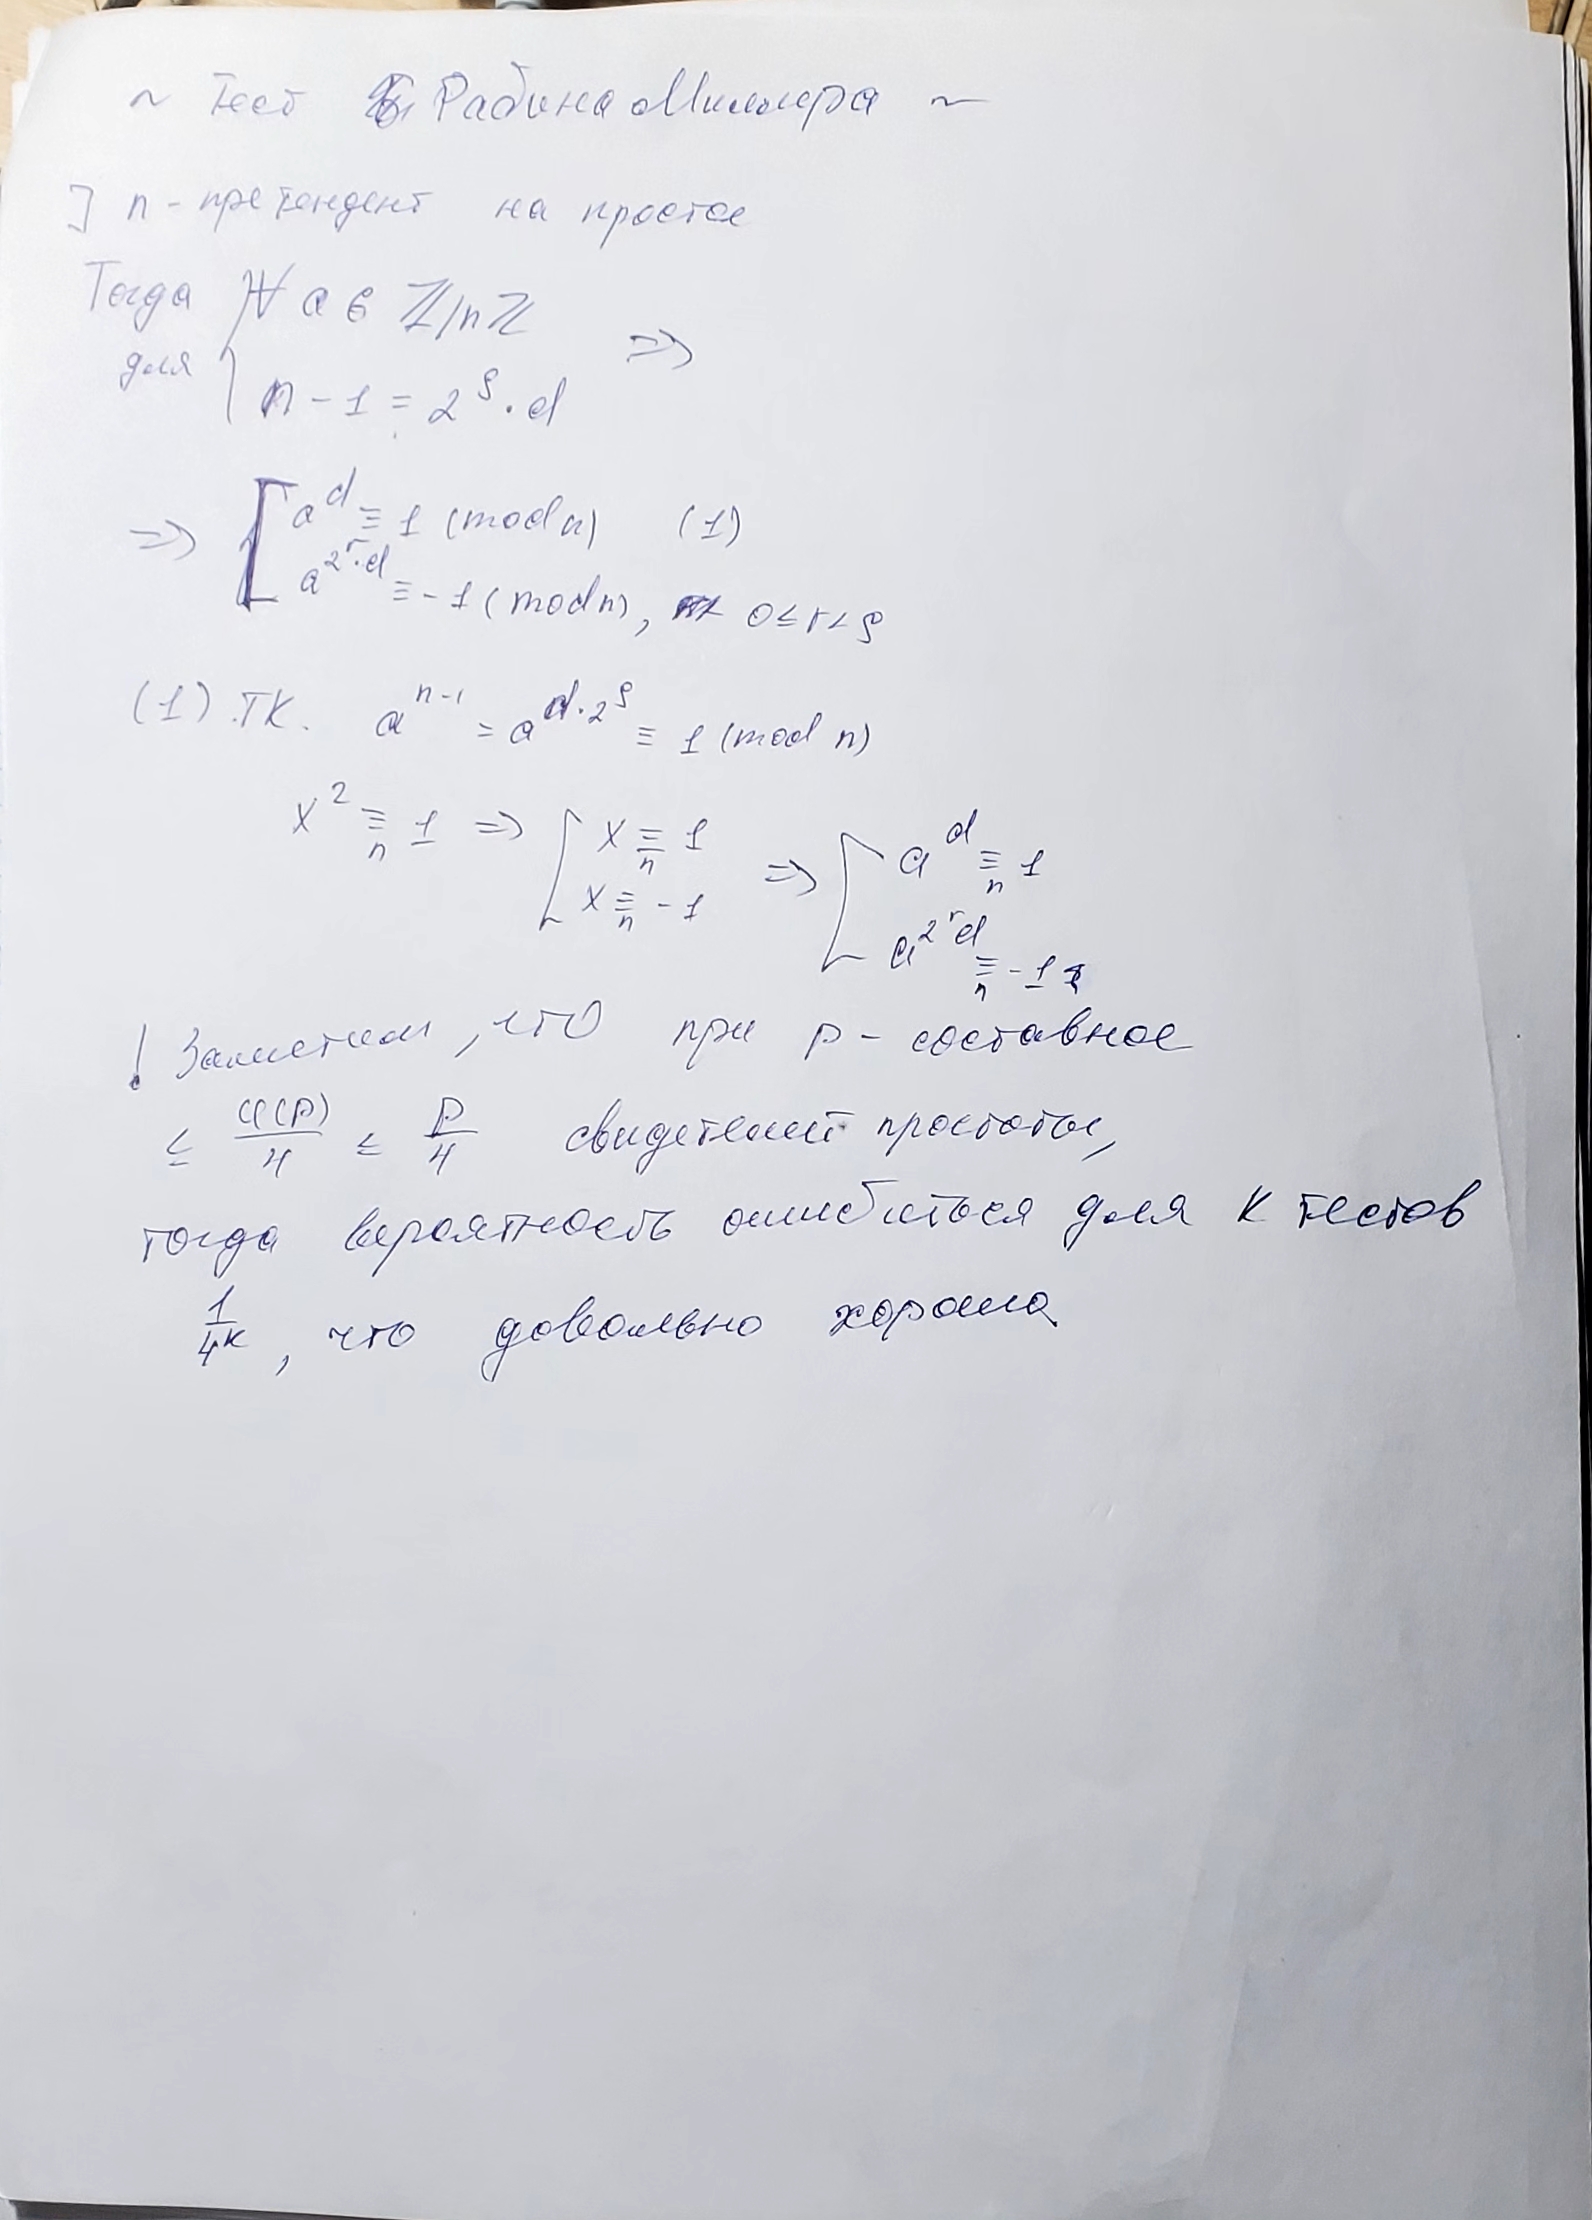 ~ Тест Рабина Миллера ~
] n - претендент на простое
Тогда ∀ a ∈ ℤ/nℤ
для { n - 1 = 2^s · d ⇒
⇒ [ a^d ≡ 1 (mod n) (1)
a^{2^r·d} ≡ -1 (mod n), 0 ≤ r < s
(1) тк. a^{n-1} = a^{d·2^s} ≡ 1 (mod n)
x² ≡_n 1 ⇒ [ x ≡_n 1 ⇒ [ a^d ≡_n 1
x ≡_n -1 a^{2^r d} ≡_n -1
! Заметим, что при p - составное
≤ φ(p)/4 ≤ p/4 свидетелей простоты,
тогда вероятность ошибиться для k тестов
1/4^k, что довольно хорошо